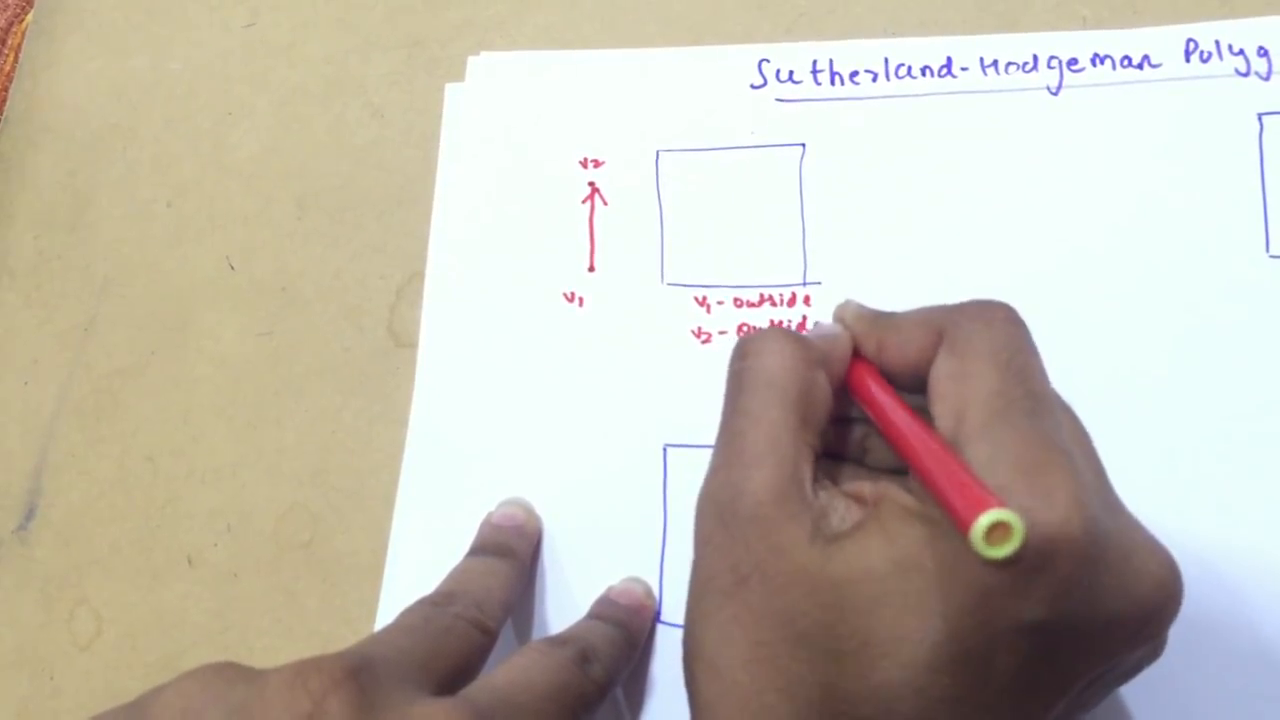 Sutherland-Hodgeman Polyg
v2
v1
v1 - outside
v2 - Outsid